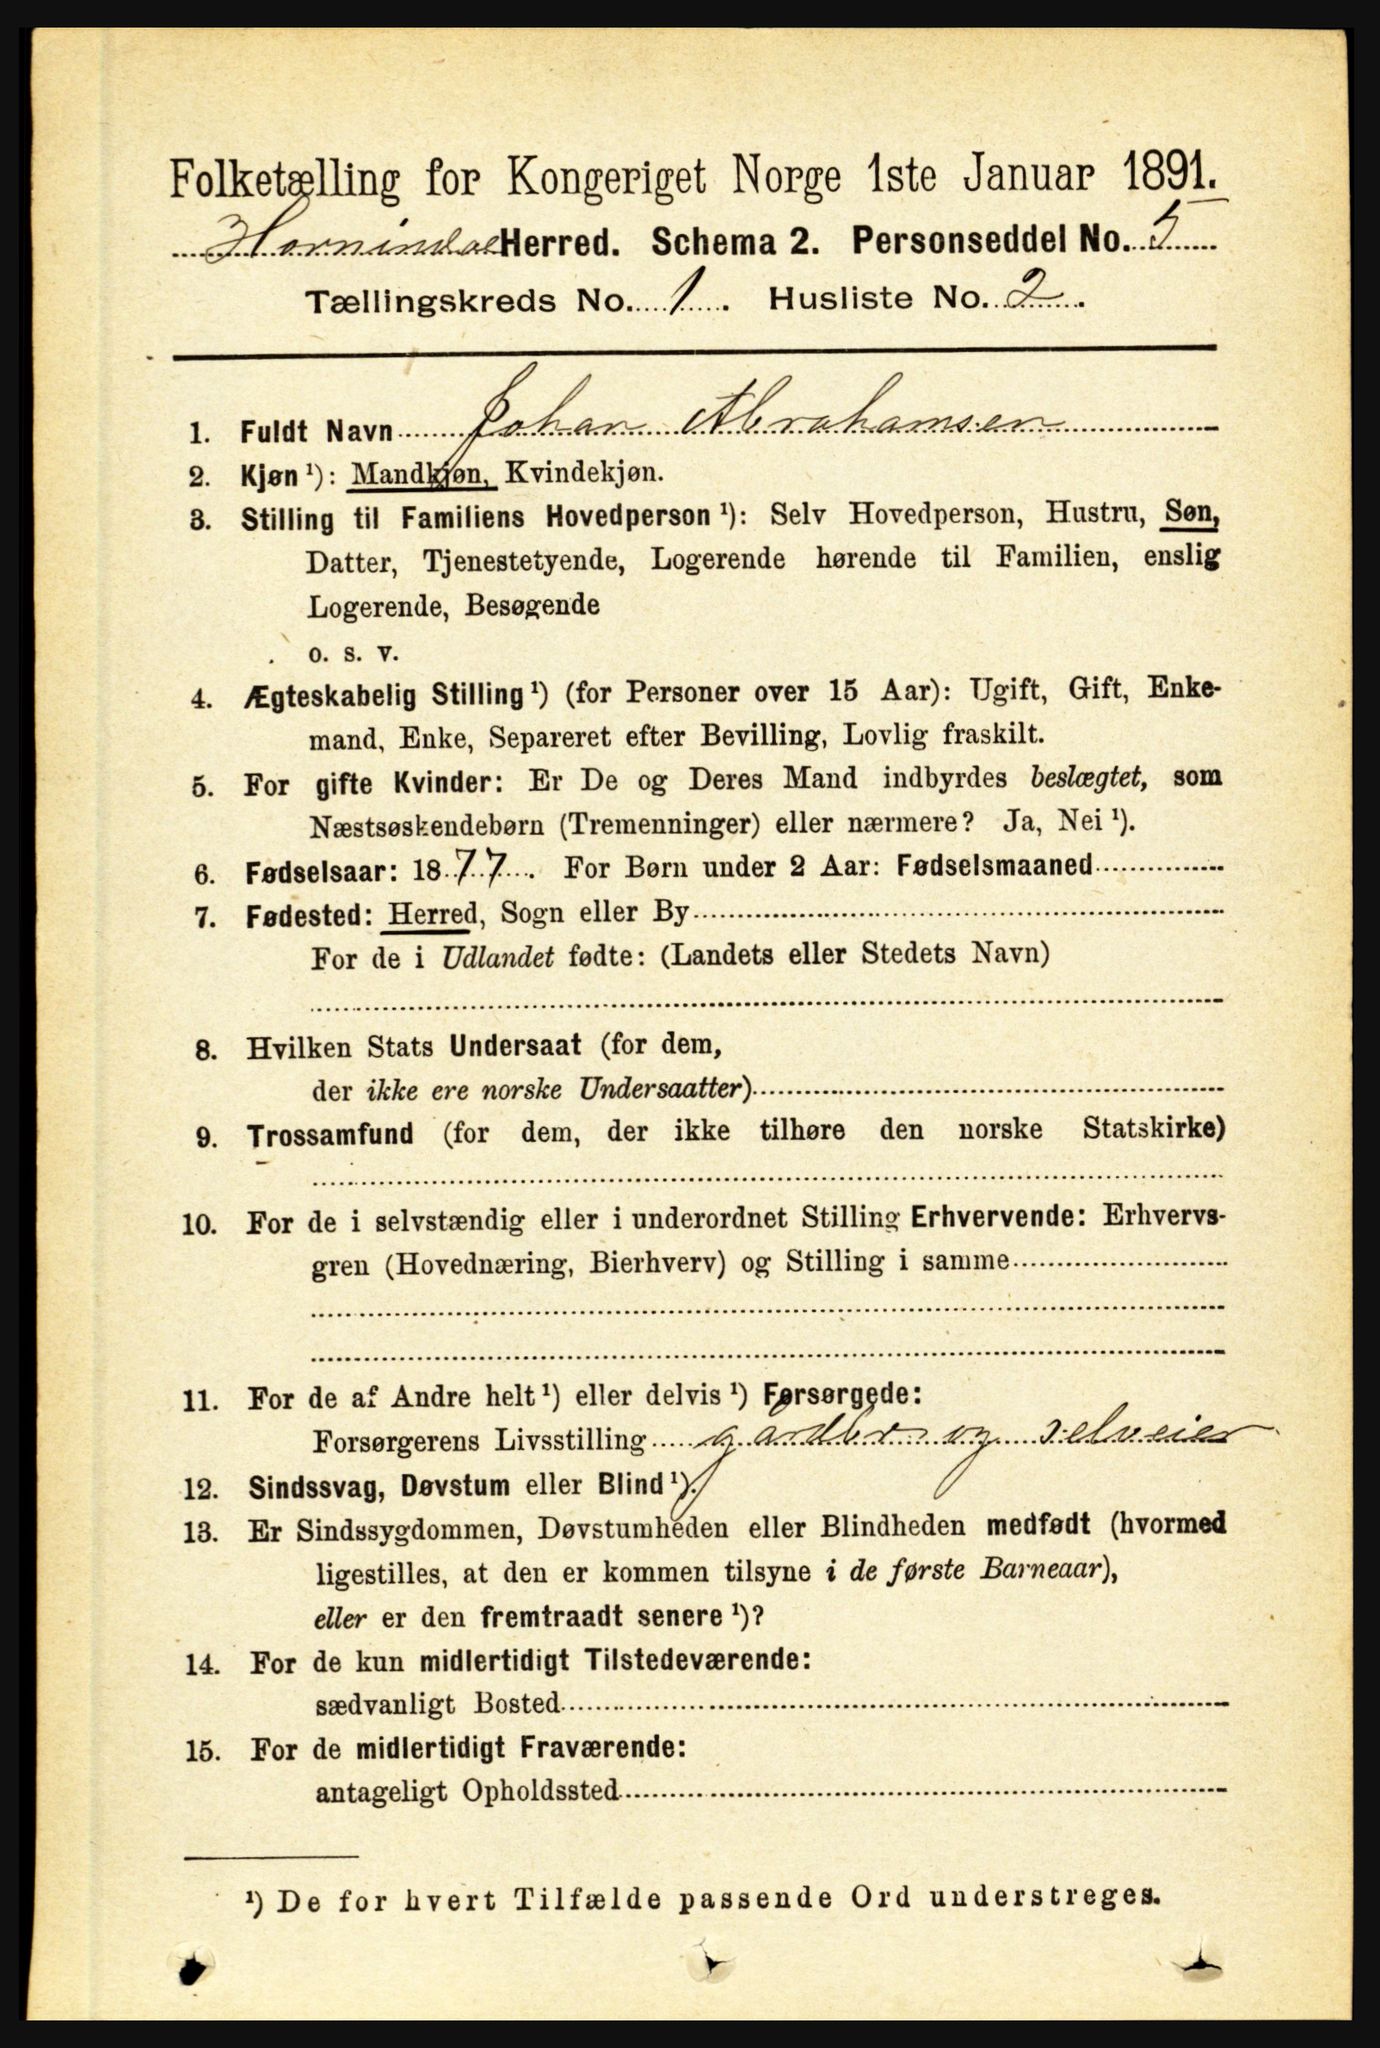 Folketælling for Kongeriget Norge 1ste Januar 1891.
Hornindal Herred. Schema 2. Personseddel No. 5
Tællingskreds No. 1. Husliste No. 2.
1. Fuldt Navn Johan Abrahamsen
2. Kjøn ¹): Mandkjøn, Kvindekjøn.
3. Stilling til Familiens Hovedperson ¹): Selv Hovedperson, Hustru, Søn,
Datter, Tjenestetyende, Logerende hørende til Familien, enslig
Logerende, Besøgende
o. s. v.
4. Ægteskabelig Stilling ¹) (for Personer over 15 Aar): Ugift, Gift, Enke-
mand, Enke, Separeret efter Bevilling, Lovlig fraskilt.
5. For gifte Kvinder: Er De og Deres Mand indbyrdes beslægtet, som
Næstsøskendebørn (Tremenninger) eller nærmere? Ja, Nei ¹).
6. Fødselsaar: 1877. For Børn under 2 Aar: Fødselsmaaned
7. Fødested: Herred, Sogn eller By
For de i Udlandet fødte: (Landets eller Stedets Navn)
8. Hvilken Stats Undersaat (for dem,
der ikke ere norske Undersaatter)
9. Trossamfund (for dem, der ikke tilhøre den norske Statskirke)
10. For de i selvstændig eller i underordnet Stilling Erhvervende: Erhvervs-
gren (Hovednæring, Bierhverv) og Stilling i samme
11. For de af Andre helt ¹) eller delvis ¹) Forsørgede:
Forsørgerens Livsstilling gardbr. og selveier
12. Sindssvag, Døvstum eller Blind ¹).
13. Er Sindssygdommen, Døvstumheden eller Blindheden medfødt (hvormed
ligestilles, at den er kommen tilsyne i de første Barneaar),
eller er den fremtraadt senere ¹)?
14. For de kun midlertidigt Tilstedeværende:
sædvanligt Bosted
15. For de midlertidigt Fraværende:
antageligt Opholdssted
¹) De for hvert Tilfælde passende Ord understreges.